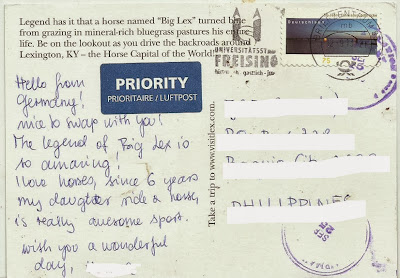 Legend has it that a horse named "Big Lex" turned blue
from grazing in mineral-rich bluegrass pastures his entire
life. Be on the lookout as you drive the backroads around
Lexington, KY – the Horse Capital of the World.
UNIVERSITÄTSSTADT
FREISING
Deutschland
75
PRIORITY
PRIORITAIRE / LUFTPOST
Hello from
Germany!
nice to swap with you!
The legend of Big Lex is
so amazing!
I love horses, since 6 years
my daugter ride a horse,
is really awesome sport.
wish you a wonderful
day,
Take a trip to www.visitlex.com.
PHILIPPINES